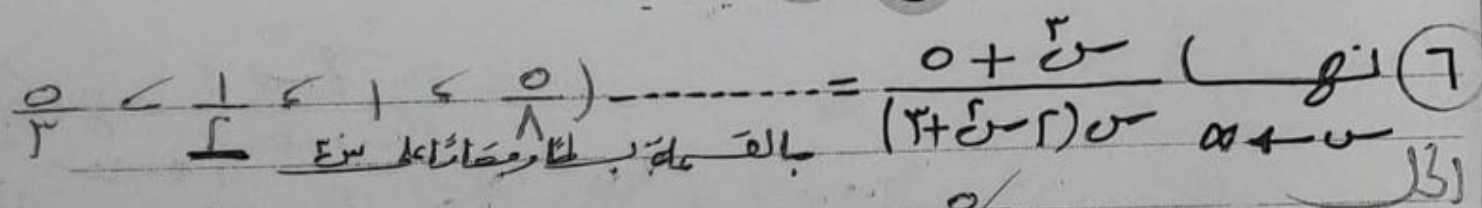 ٦) نهـــا س³ + ٥ / س(٢س² + ٣) = --------- ( ٥/٨ ، ١ ، ١/٢ ، ٥/٣
س ← ∞ بالقسمة بسطًا ومقامًا على س٣
الحل